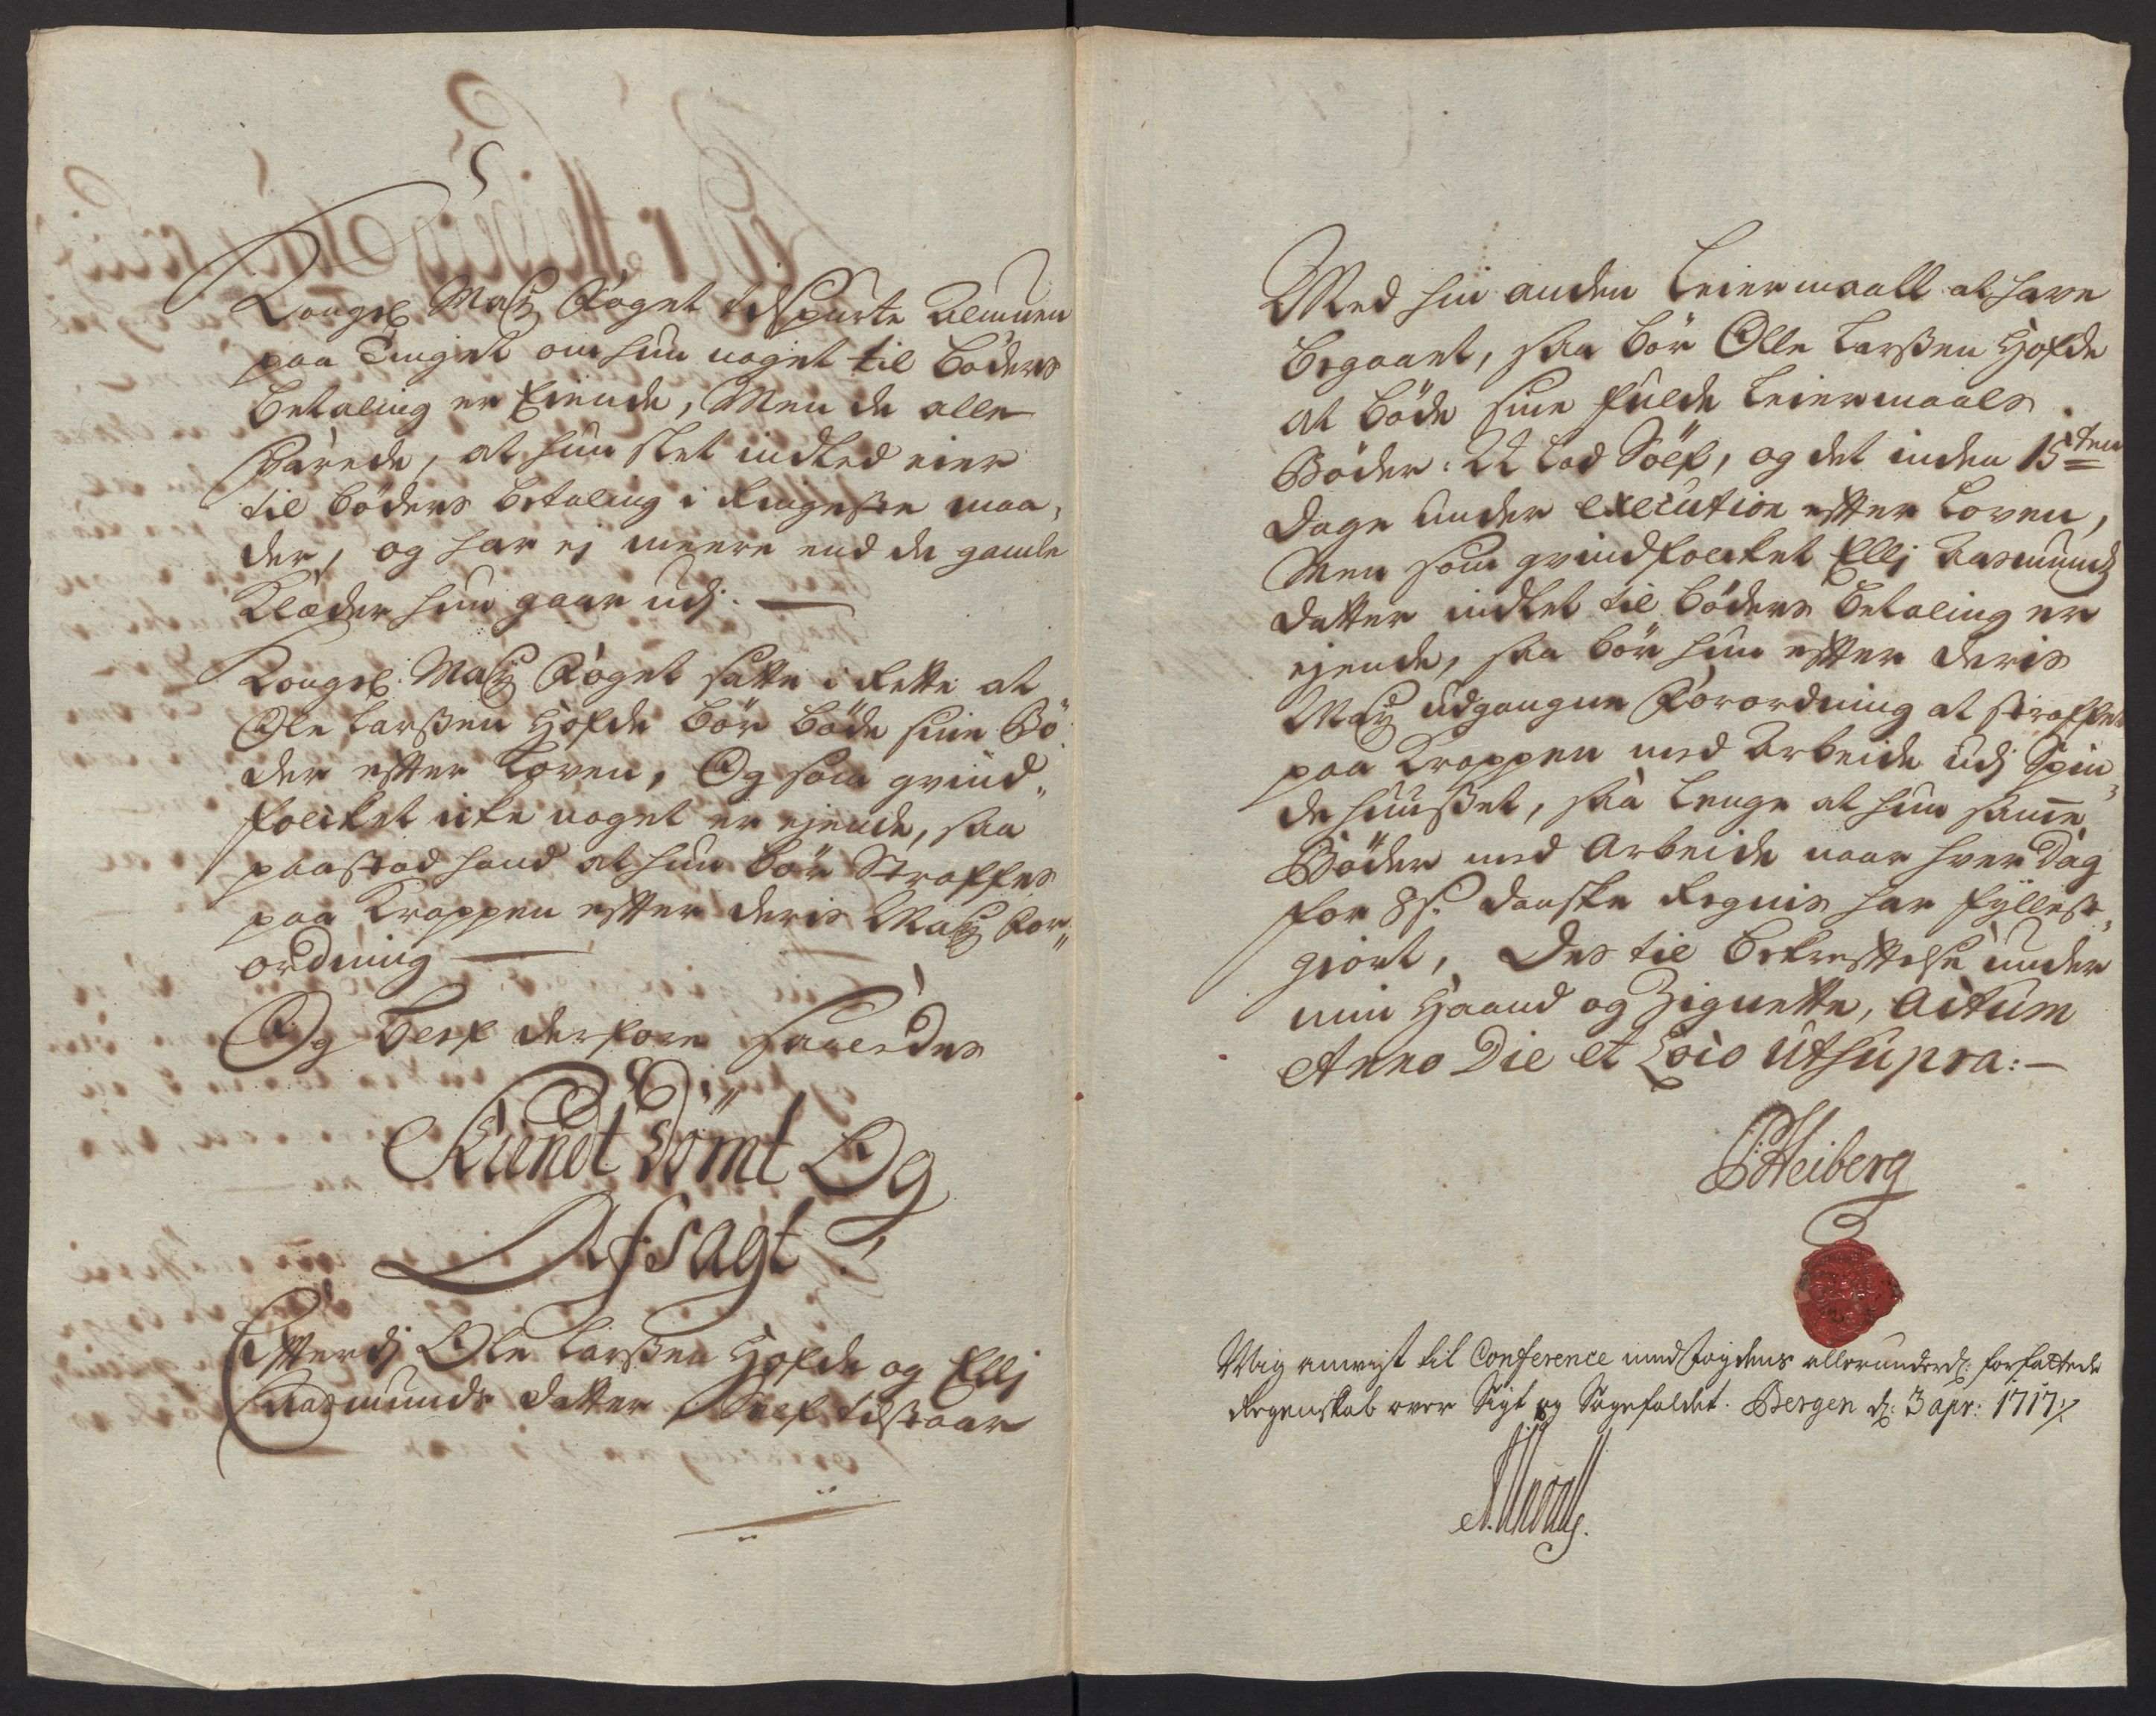 Kongel. Mayt. Foget tilspurte Almuen
paa Tinget om hun noget til bøders
betaling er Eiende, Men de alle
svarede, at hun slet indted eier
til bøders betaling i Ringeste maa,
der, og har ej meere end de gamle
Klæder hun gaar udj. —
Kongel. Mayt. Foget satte i Rette at
Ole Larssen Hofde bør bøde sine Bø
der efter Loven, Og som qvind„
folcket icke noget er ejende, saa
paastod hand at hun bør Straffes
paa Kroppen efter deris Mayt. For„
ordning —
Og blef derfore saaledes
Kiendt Dömt Og
Afsagt:
Efterdj Ole Larssen Hofde og Ellj
Rasmunds datter Self tilstaar
Med hin anden Leiermaall at have
begaaet, saa bør Olle Larssen Hofde
at bøde sine fulde Leiermaals
Bøder: 12 Lod Sølf, og det inden 15ten
dage under execution efter Loven,
Men som qvindfolcket Ellj Rasmunds
datter indtet til bøders betaling er
ejende, saa bør hun efter deris
Mayt. udgangne Forordning at straffes
paa Kroppen med Arbeide udj Spin„
dehuusset, saa lenge at hun samme
Bøder med Arbeide naar hver dag
for 8 s. danske Regnis har fyllest„
giort, Des til bekreftelse under
min Haand og Zignette, Actum
Anno Die et Loco Utsupra:—
Heiberg
Mig anvist til Conference med fogdens allerunderd. forfattede
Regenskab over Sigt og Sagefaldet. Bergen d. 3 apr: 1717